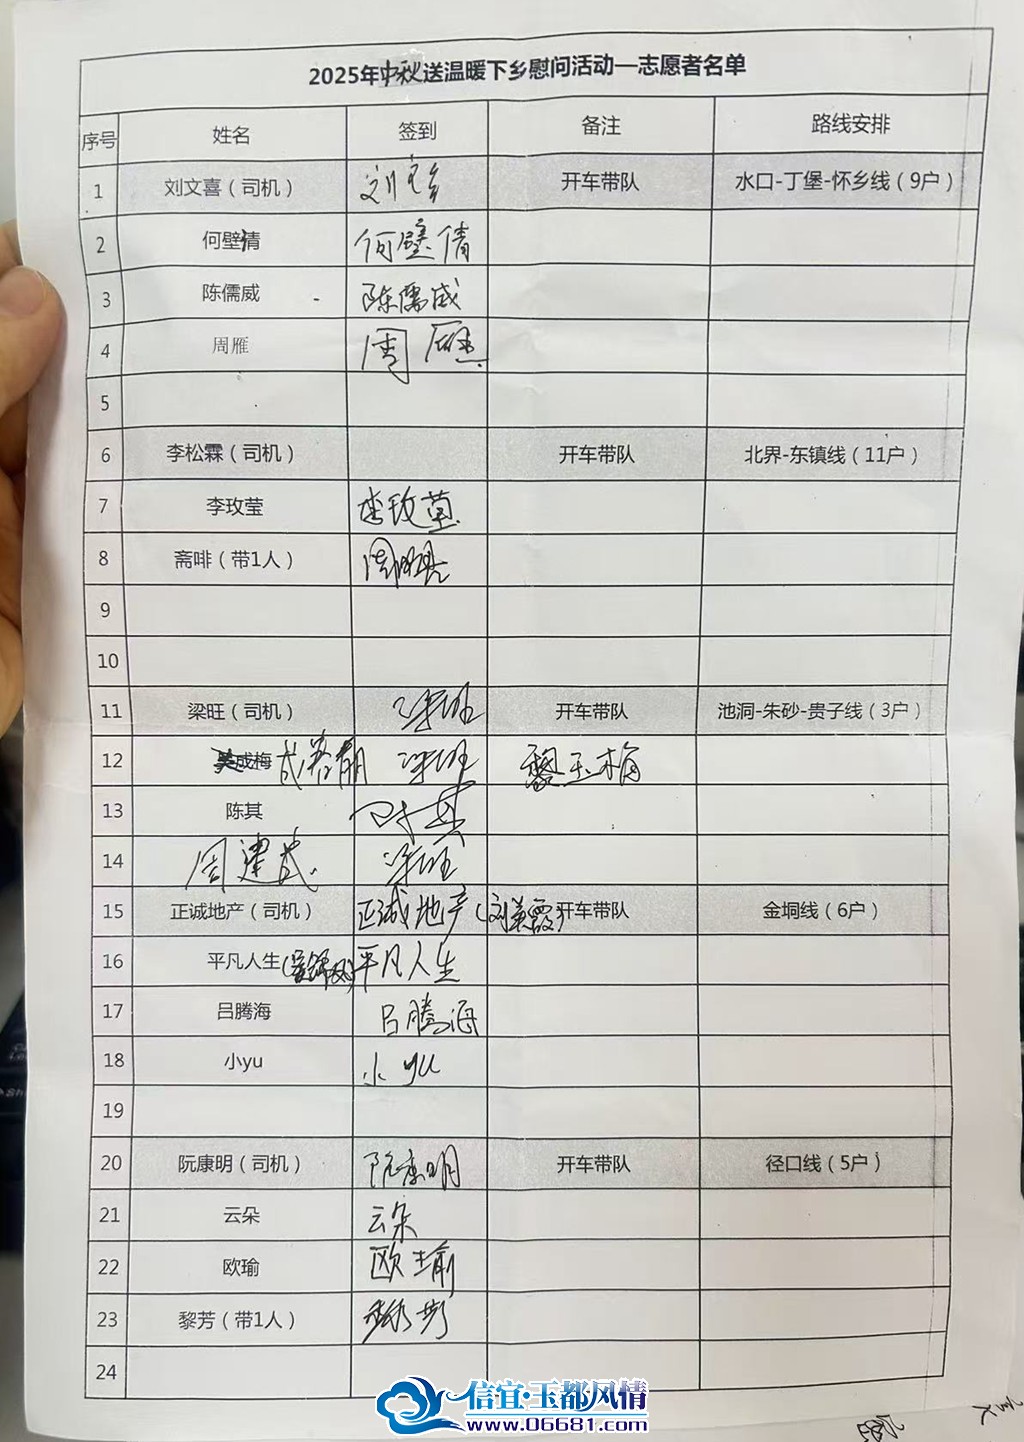 2025年中秋送温暖下乡慰问活动—志愿者名单
序号 姓名 签到 备注 路线安排
1 刘文喜（司机） 开车带队 水口-丁堡-怀乡线（9户）
2 何壁倩 何壁倩
3 陈儒威 陈儒威
4 周雁 周雁
5
6 李松霖（司机） 开车带队 北界-东镇线（11户）
7 李玫莹 李玫莹
8 斋啡（带1人）
9
10
11 梁旺（司机） 开车带队 池洞-朱砂-贵子线（3户）
12 成梅 黎玉梅
13 陈其 陈其
14 周建武
15 正诚地产（司机） 正诚地产（刘美霞） 开车带队 金垌线（6户）
16 平凡人生 平凡人生
17 吕腾海 吕腾海
18 小yu 小yu
19
20 阮康明（司机） 阮康明 开车带队 径口线（5户）
21 云朵 云朵
22 欧瑜 欧瑜
23 黎芳（带1人） 黎芳
24
信宜·玉都风情
www.06681.com